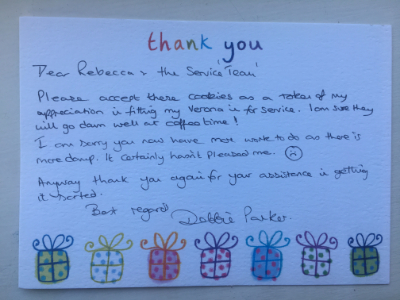 thank you
Dear Rebecca & the Service Team
Please accept these cookies as a token of my
appreciation in fitting my Verona in for service. I am sure they
will go down well at coffee time!
I am sorry you now have more work to do as there is
more damp. It certainly hasn't pleased me. ☹
Anyway thank you again for your assistance in getting
it sorted.
Best regards
Debbie Parker.